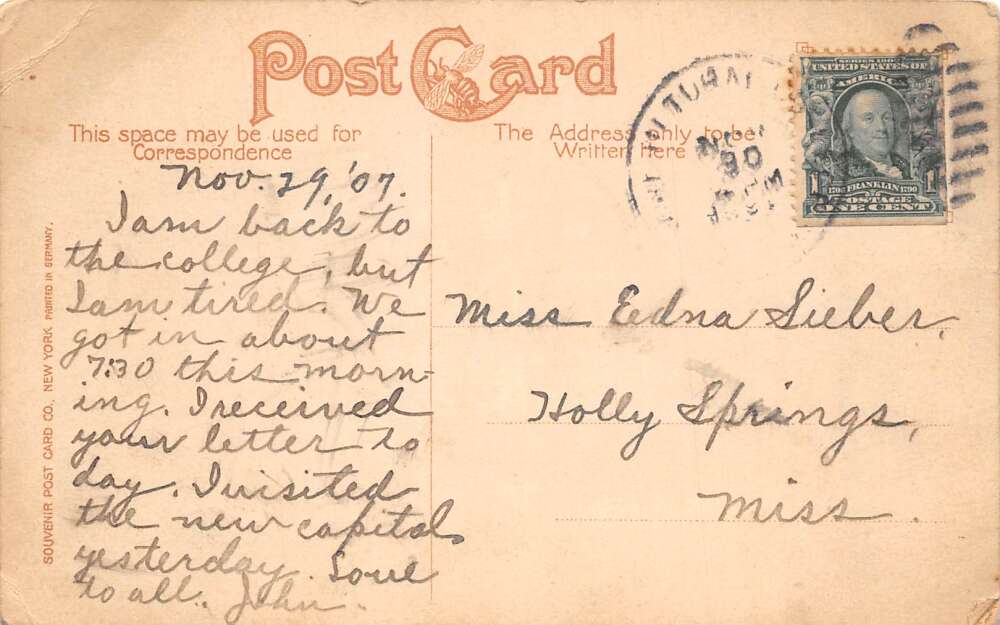 Post Card
This space may be used for
Correspondence
The Address only to be
Written here
Nov. 29, '07.
I am back to
the college, but
I am tired. We
got in about
7:30 this morn-
ing. I received
your letter to
day. I visited
the new capital
yesterday. Love
to all. John.
Miss Edna Sieber,
Holly Springs,
Miss.
SOUVENIR POST CARD CO., NEW YORK PRINTED IN GERMANY.
SERIES 1902
UNITED STATES OF
AMERICA
1706 FRANKLIN 1790
POSTAGE
1 ONE CENT 1
NOV
30